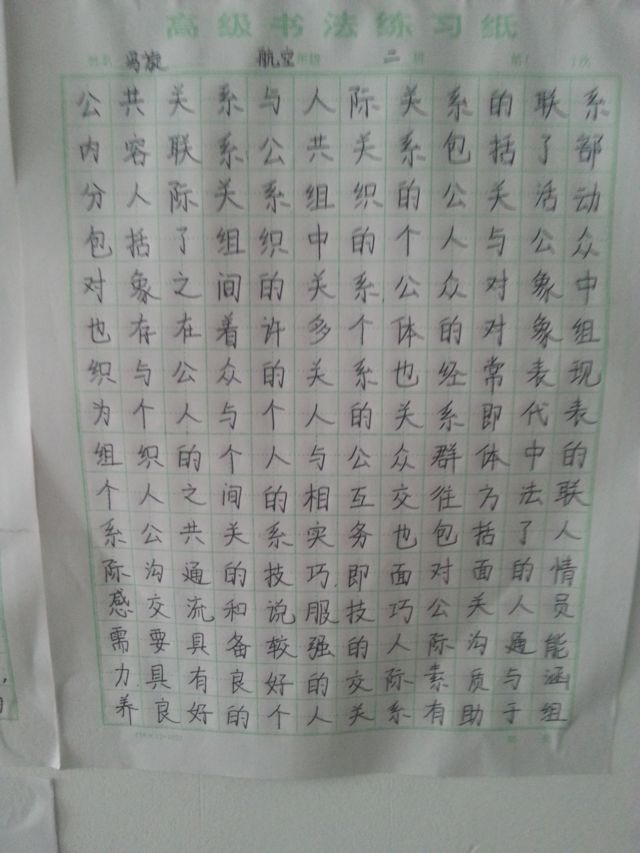 高级书法练习纸
冯旋 航空年级 二班 第 次
公共关系与人际关系的联系
内容联系公共关系包括了部
分人际关系组织的公关活动
包括了组织中的个人与公众
对象之间的关系公众对象中
也存在着许多个体的对象组
织与公众的关系也经常表现
为个人与个人的关系即代表
组织的个人与公众群体中的
个人之间的相互交往方法联
系公共关系实务也包括了人
际沟通的技巧即面对面的情
感交流和说服技巧公关人员
需要具备较强的人际沟通能
力具有良好的交际素质与涵
养良好的个人关系有助于组